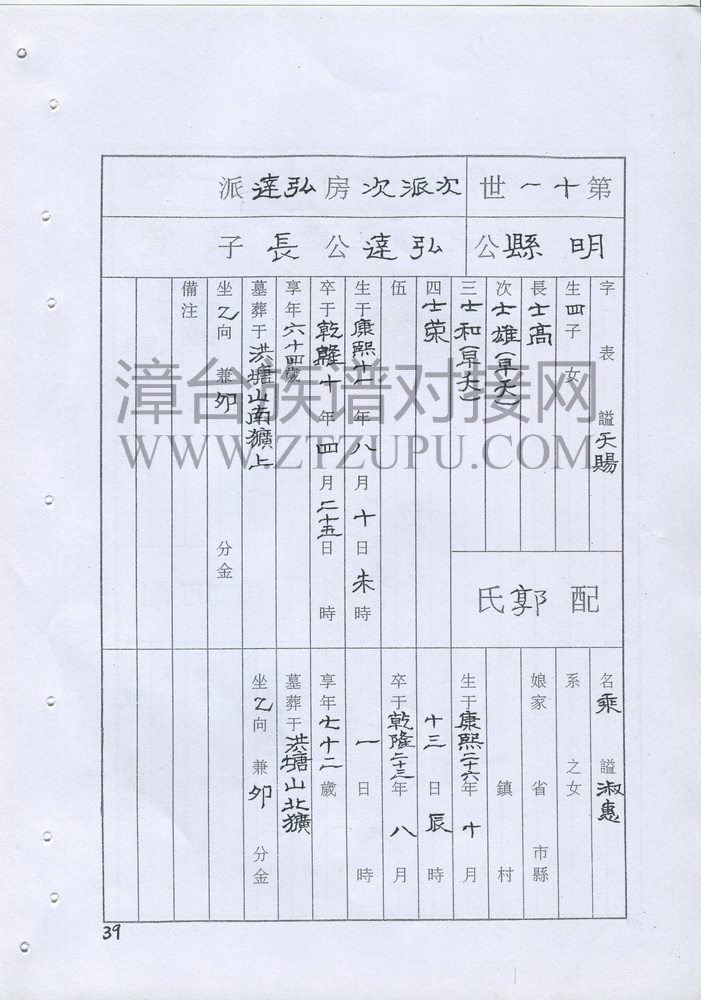 第十一世 次派次房弘達派
明縣公 弘達公長子
字 表 諡天賜
生四子 女
長士高
次士雄(早夭)
三士和(早夭)
四士榮
伍
生于康熙十一年八月十日未時
卒于乾隆十年四月二十五日 時
享年六十四歲
墓葬于洪塘山南獷上
坐乙向 兼卯 分金
備注
配郭氏
名乘 諡淑惠
系 之女
娘家 省 市縣
鎮 村
生于康熙二十六年十月
十三日辰時
卒于乾隆二十三年八月
一日 時
享年七十二歲
墓葬于洪塘山北獷
坐乙向 兼卯 分金
39
漳台族谱对接网
WWW.ZTZUPU.COM